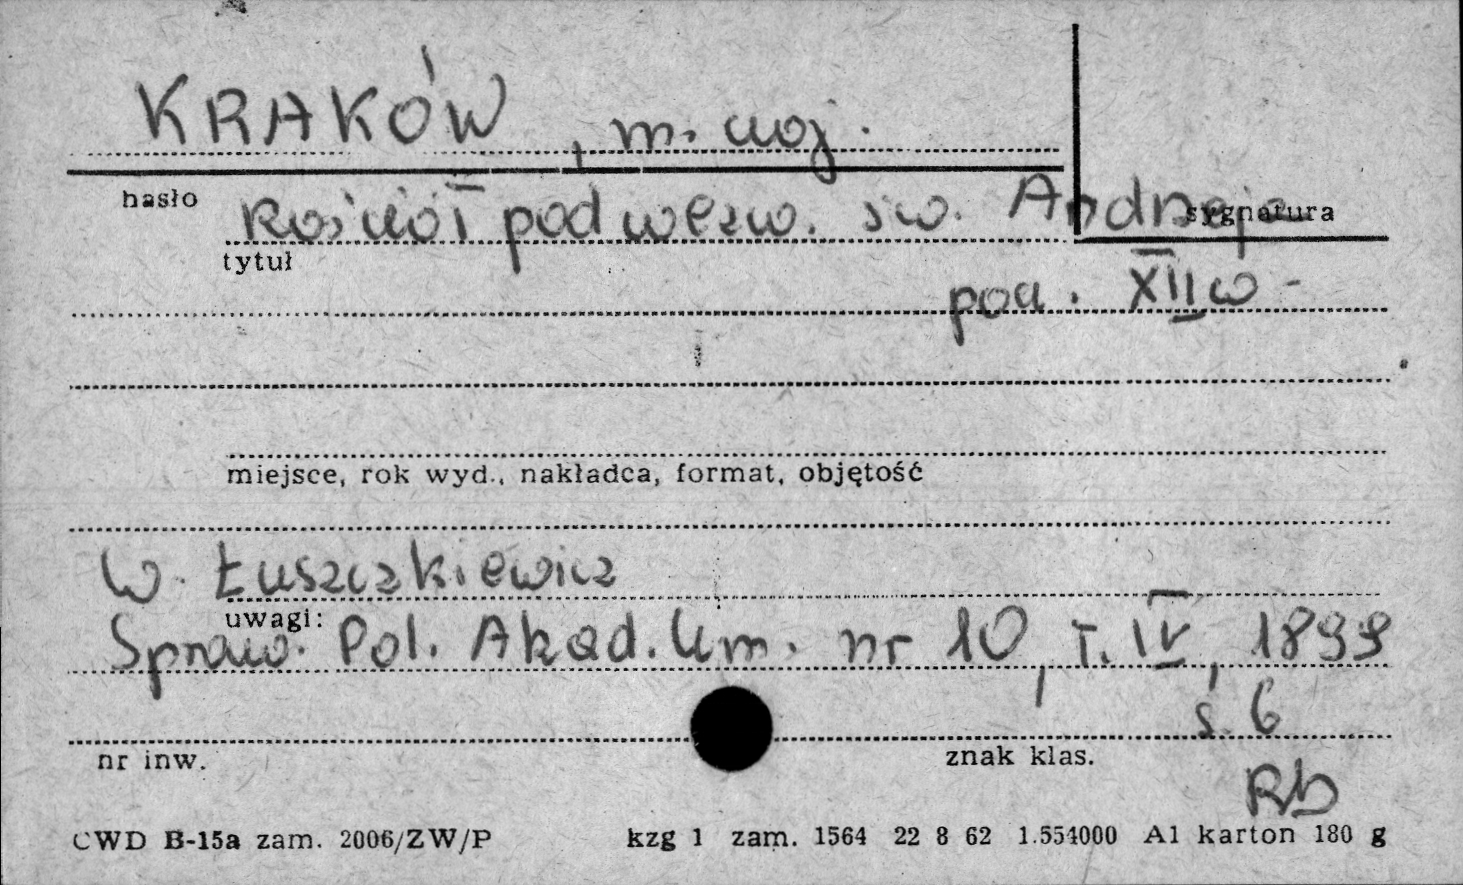 KRAKÓW, m. woj.
hasło
Kościół pod wezw. św. Andrzeja
sygnatura
tytuł
pocz. XII w -
miejsce, rok wyd., nakładca, format, objętość
W. Łuszczkiewicz
uwagi:
Spraw. Pol. Akad. Um. nr 10, T. IV, 1899
s. 6
nr inw.
znak klas.
Rb
CWD B-15a zam. 2006/ZW/P kzg 1 zam. 1564 22 8 62 1.554000 A1 karton 180 g